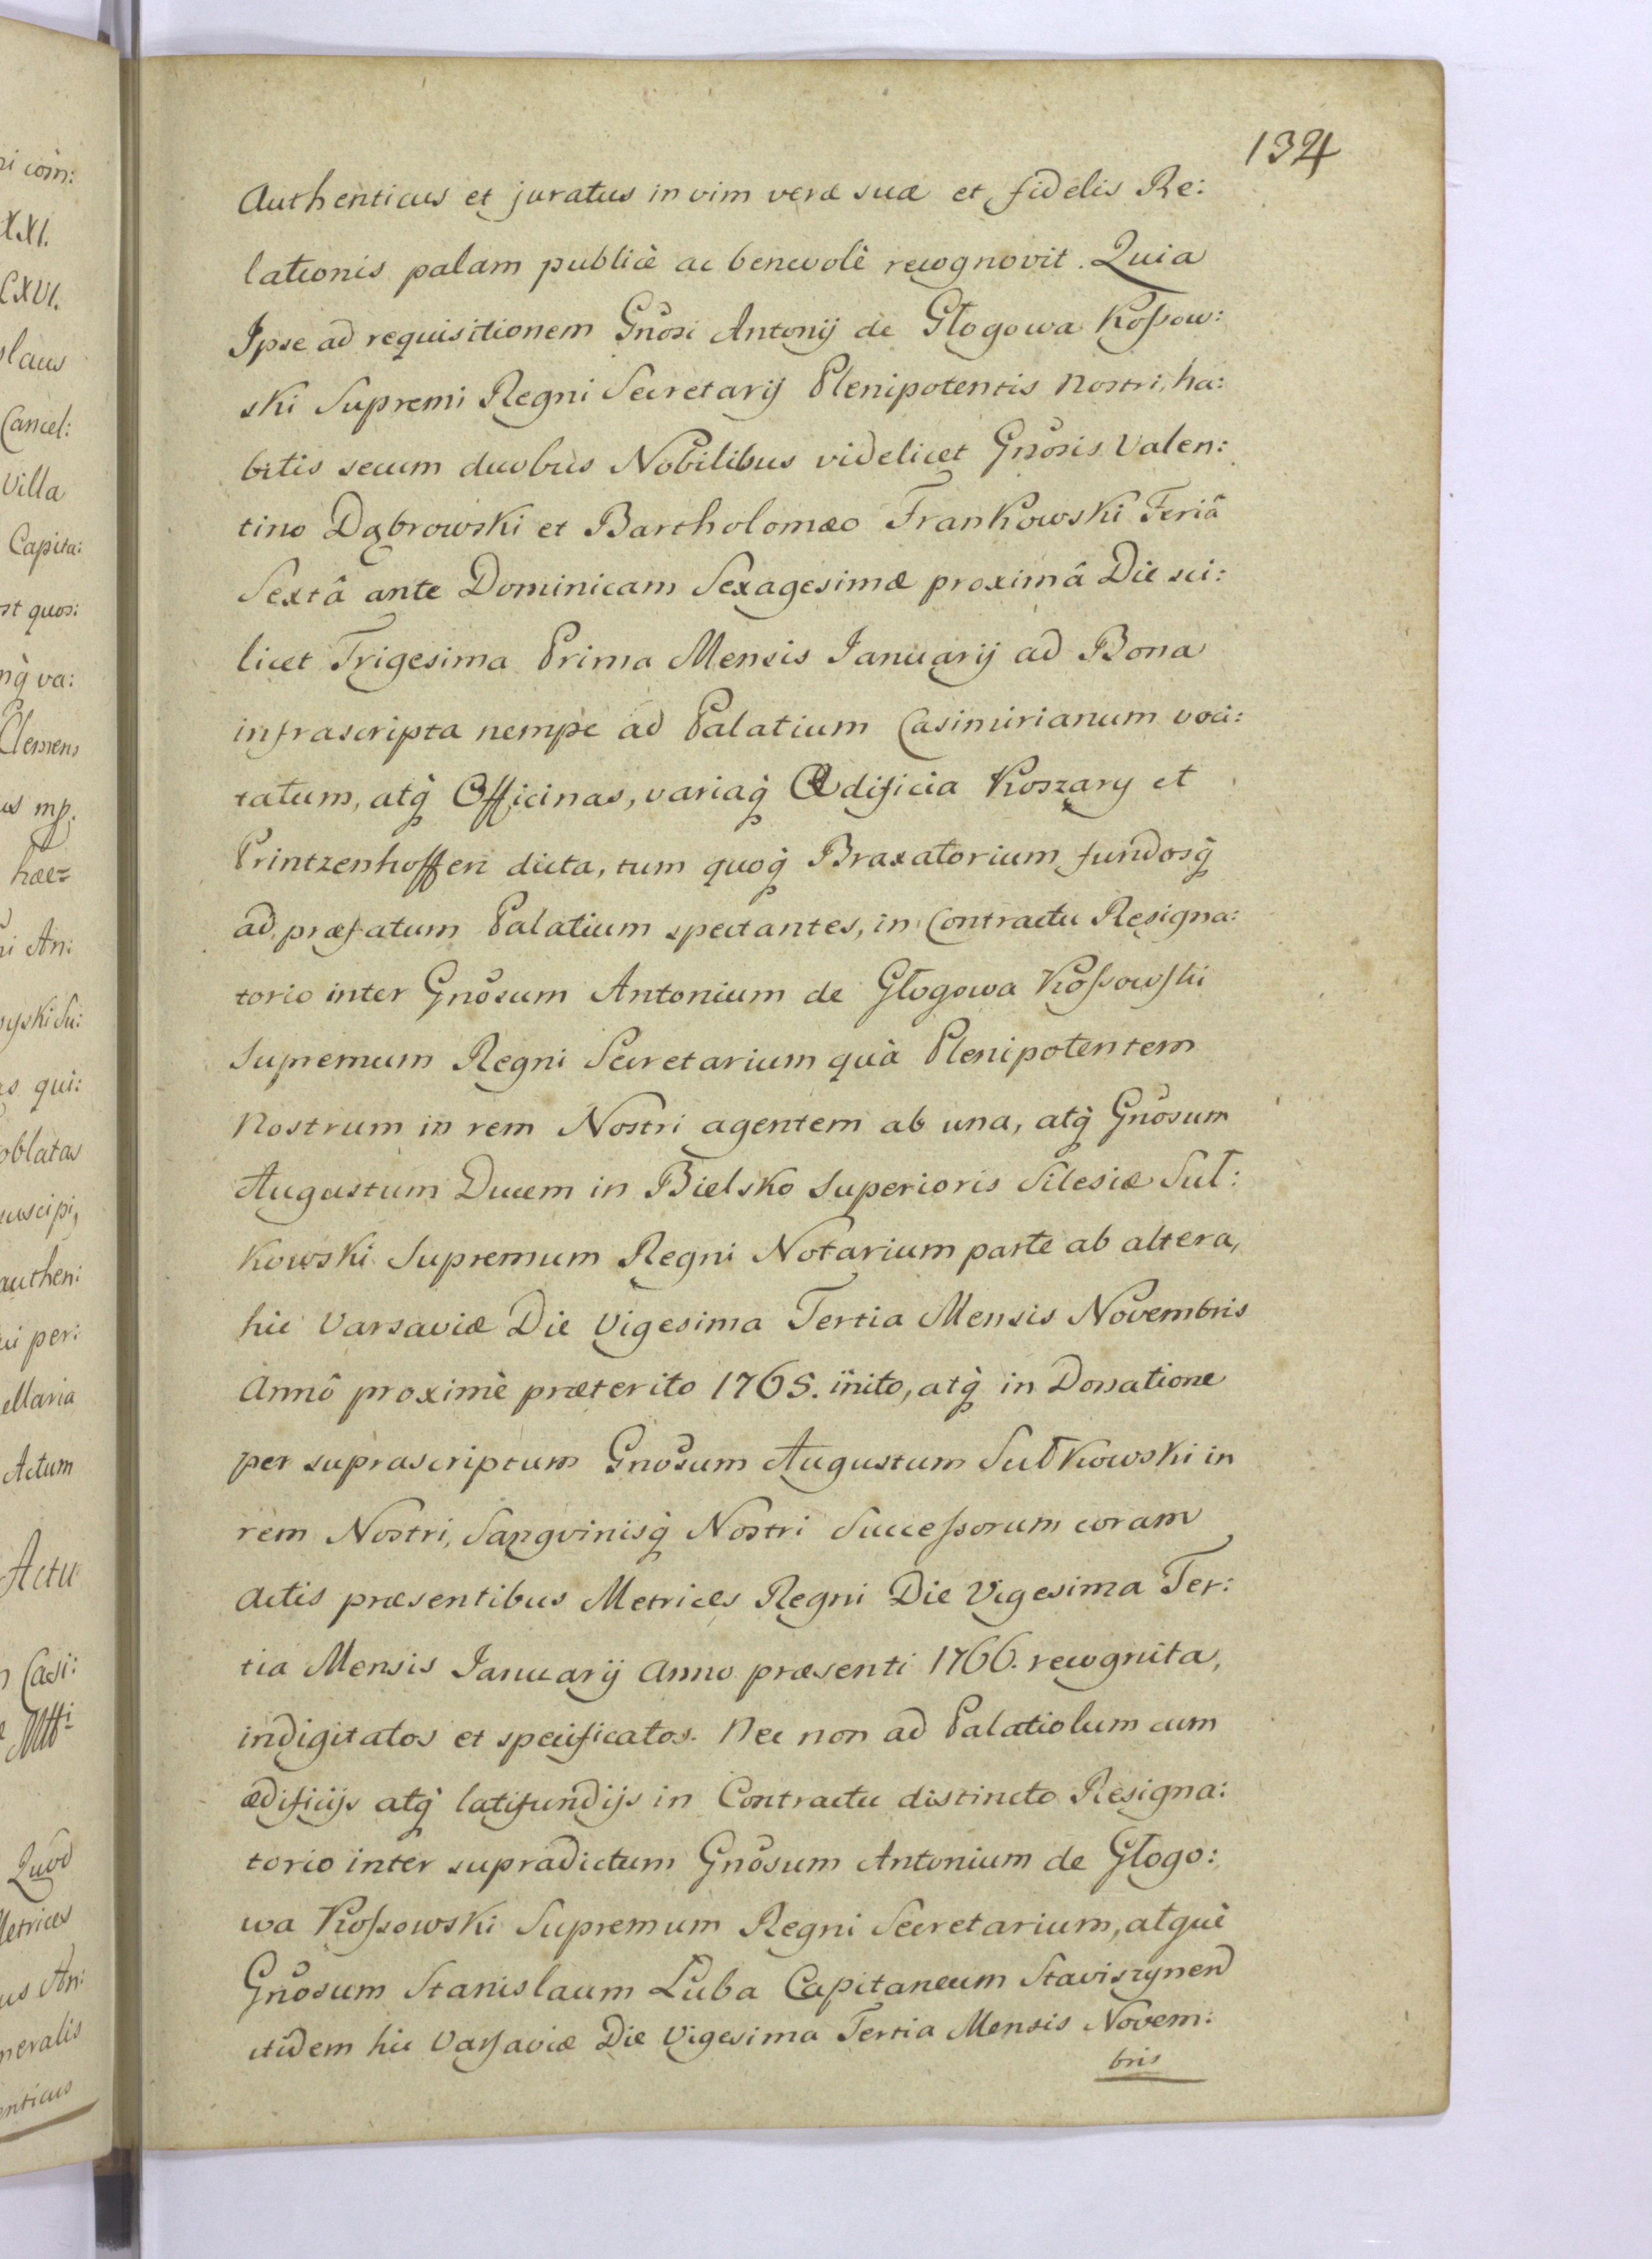 134
Authenticus et juratus in vim veræ suæ et fidelis Re:
lationis palam publicè ac benevolè recognovit. Quia
Ipse ad requisitionem Gnosi Antonij de Głogowa Koſsow:
ski Supremi Regni Secretarij Plenipotentis Nostri, ha:
bitis secum duobus Nobilibus videlicet Gnosis Valen:
tino Dąbrowski et Bartholomæo Frankowski Feriâ
Sextâ ante Dominicam Sexagesimæ proximâ Die sci:
licet Trigesima Prima Mensis Januarij ad Bona
infrascripta nempe ad Palatium Casimirianum voci:
tatum, atq̀ Officinas, variaq̀ Ædificia Koszary et
Printzenhofferi dicta, tum quoq̀ Braxatorium fundosq̀
ad præfatum Palatium spectantes, in Contractu Resigna:
torio inter Gnosum Antonium de Głogowa Koſsowſki
Supremum Regni Secretarium quà Plenipotentem
Nostrum in rem Nostri agentem ab una, atq̀ Gnosum
Augustum Ducem in Bielsko Superioris Silesiæ Suł:
kowski Supremum Regni Notarium parte ab altera,
hic Varsaviæ Die Vigesima Tertia Mensis Novembris
Annô proximè præterito 1765. inito, atq̀ in Donatione
per suprascriptum Gnosum Augustum Sułkowski in
rem Nostri, Sangvinisq̀ Nostri Succeſsorum coram
Actis præsentibus Metrices Regni Die Vigesima Ter:
tia Mensis Januarij Anno præsenti 1766. recognita,
indigitatos et specificatos. Nec non ad Palatiolum cum
ædificijs atq̀ latifundijs in Contractu distincto Resigna:
torio inter supradictum Gnosum Antonium de Głogo:
wa Koſsowski Supremum Regni Secretarium, atquè
Gnosum Stanislaum Łuba Capitaneum Staviszynen
itidem hic Varſaviæ Die Vigesima Tertia Mensis Novem:
bris